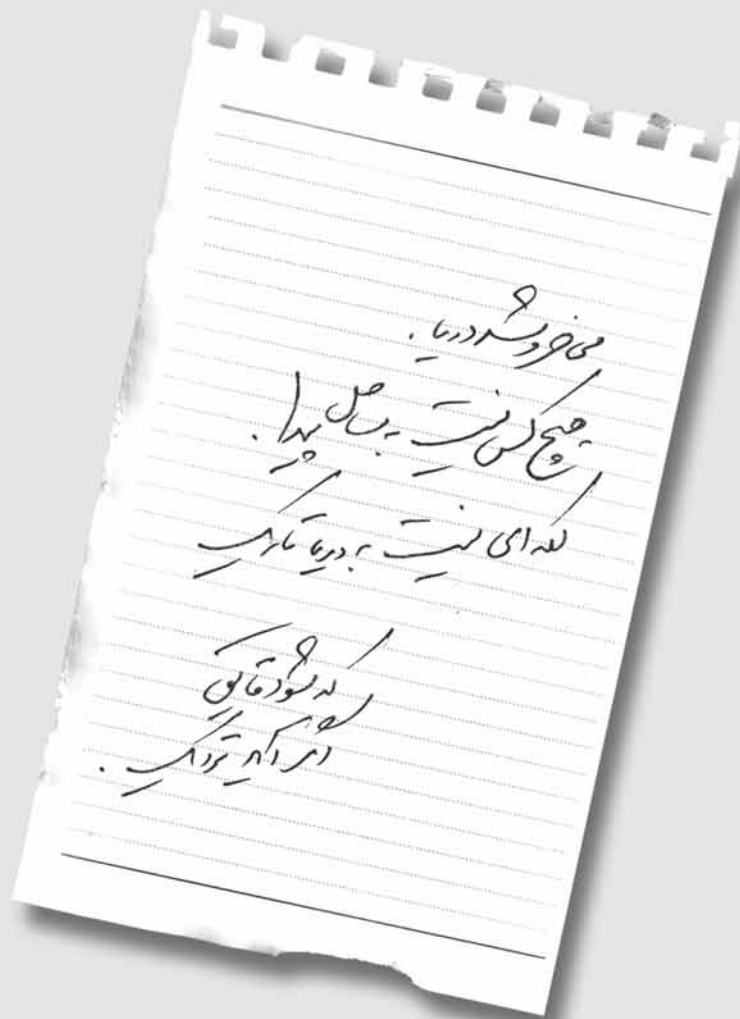 می خروشد دریا.
هیچ کس نیست به ساحل پیدا.
لکه ای نیست به دریا تاریک
که شود قایق
اگر آید نزدیک.